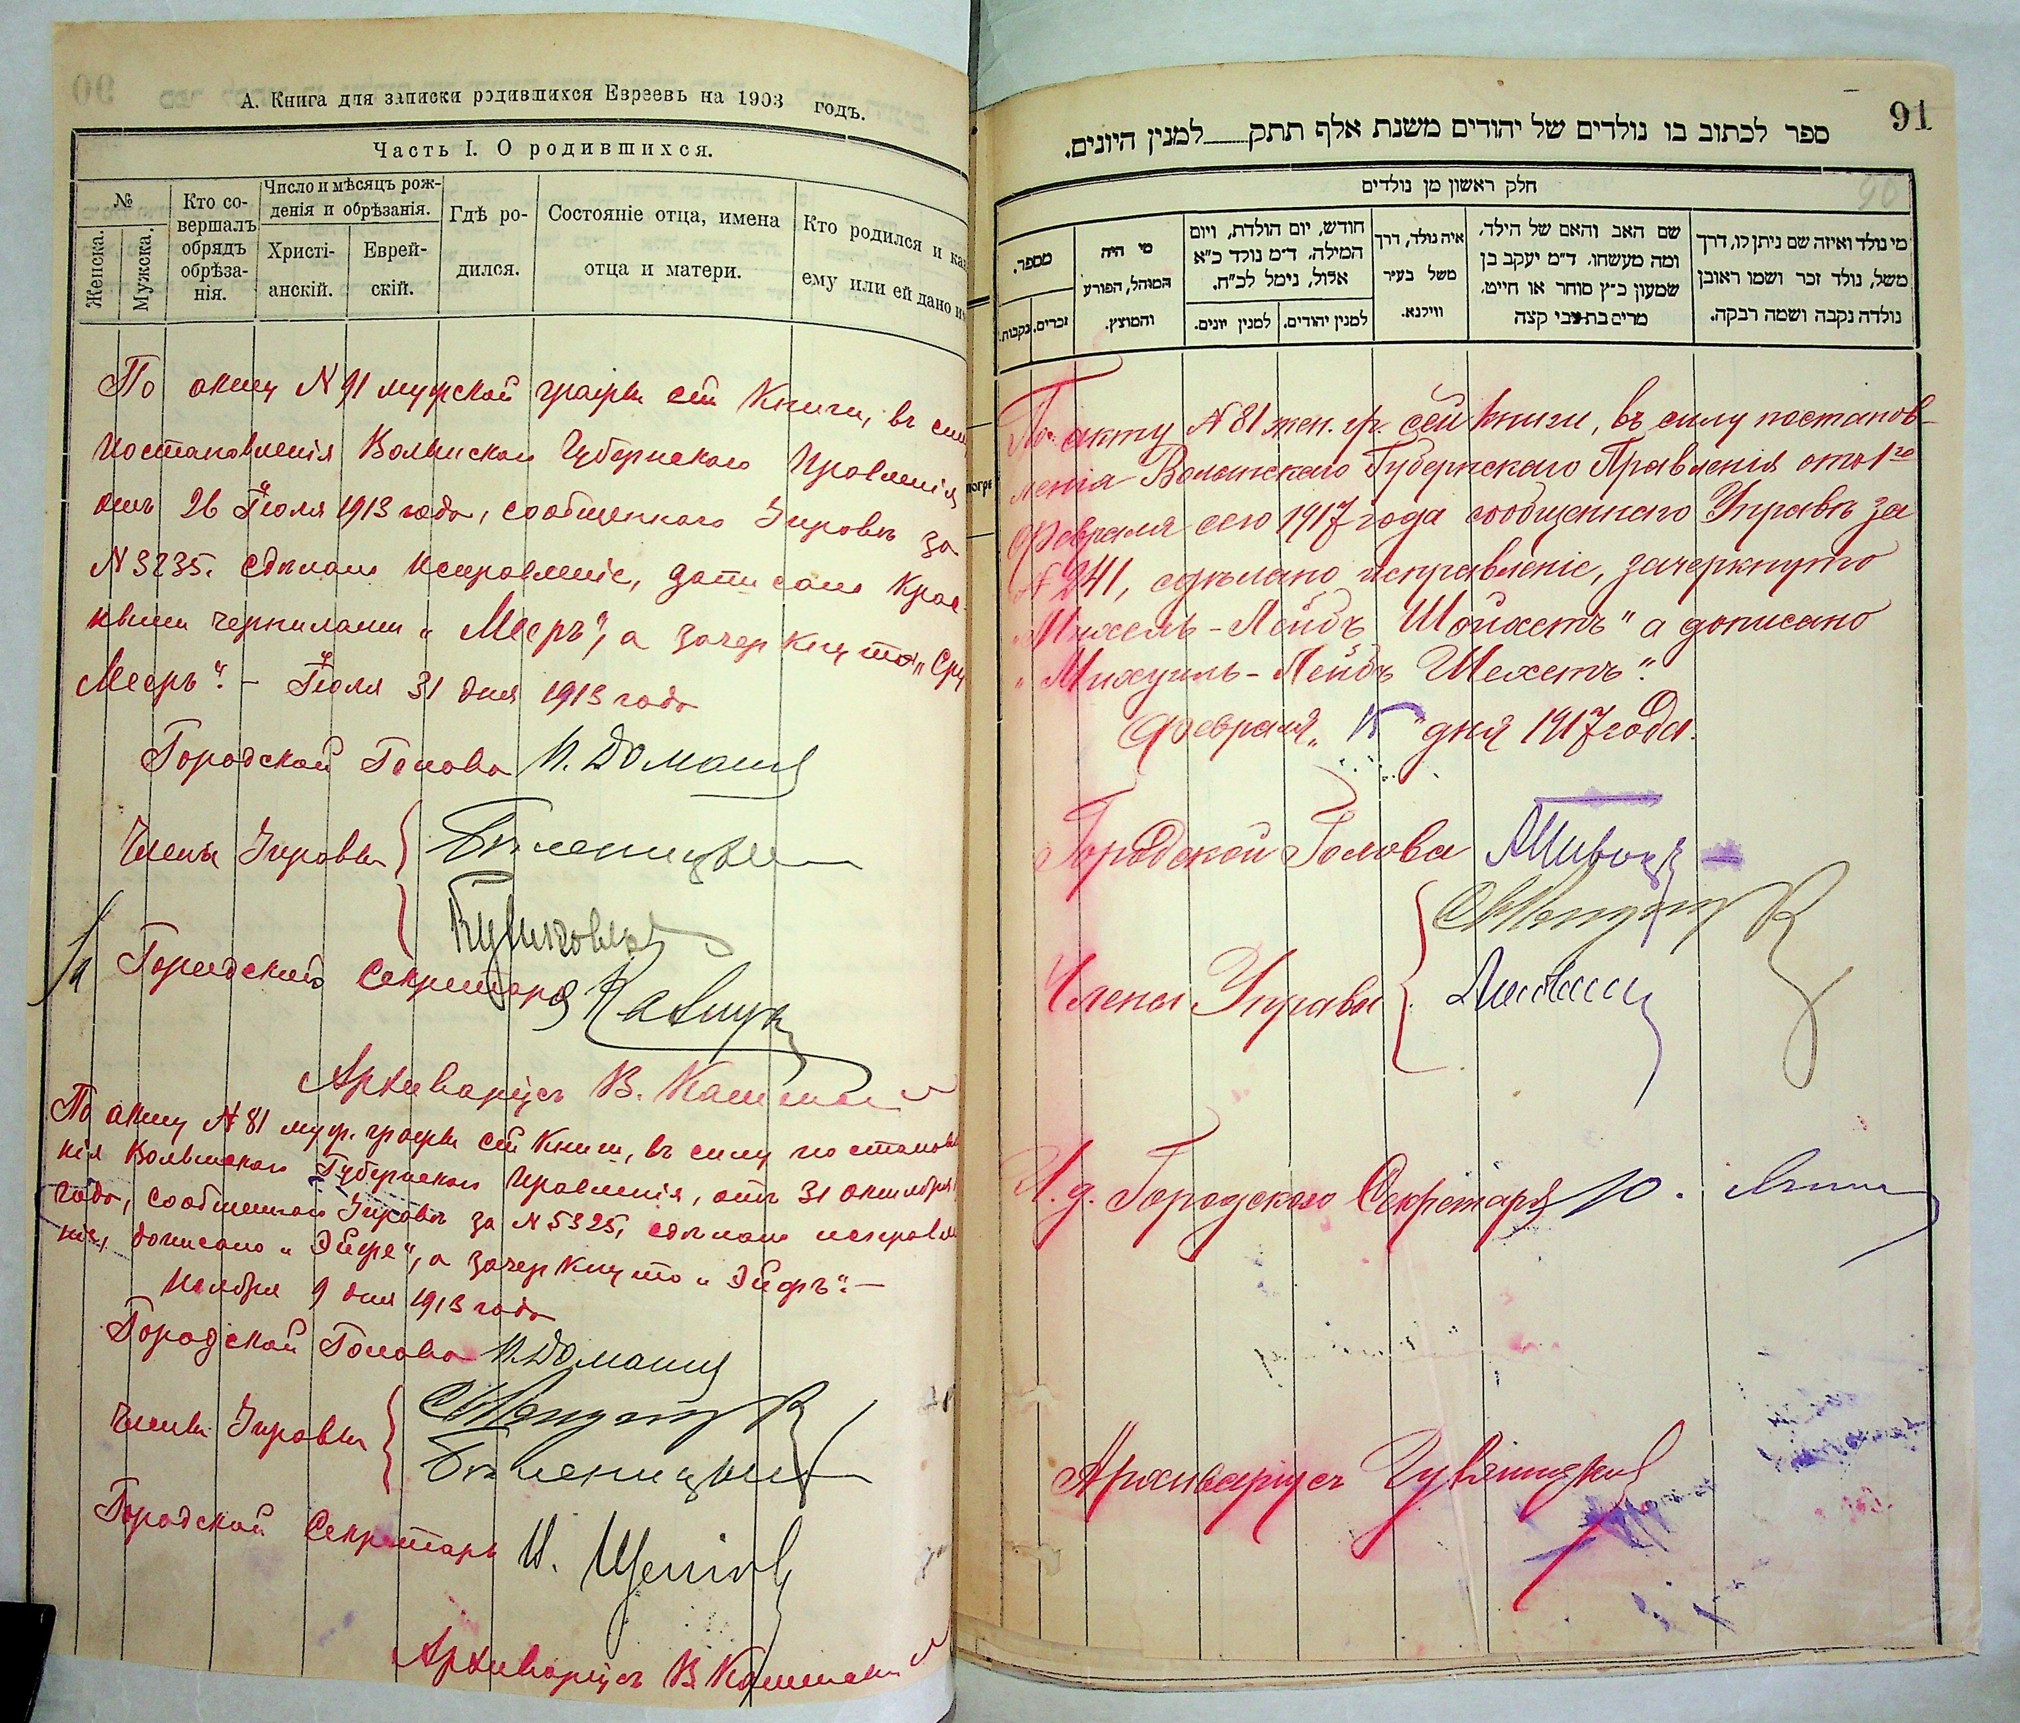 А. Книга для записки родившихся Евреевъ на 1903 годъ.
Часть I. О родившихся.
№
Женска.
Мужска.
Кто совершалъ обрядъ обрѣзанія.
Число и мѣсяцъ рожденія и обрѣзанія.
Христіанскій.
Еврейскій.
Гдѣ родился.
Состояніе отца, имена отца и матери.
Кто родился и как
ему или ей дано и
По акту N 91 мужской графы сей Книги, въ силу
постановленія Волынскаго Губернскаго Правленія
отъ 26 Іюля 1913 года, сообщеннаго Управѣ за
N 3235, сдѣлано исправленіе, дописано крас-
ными чернилами „Мееръ", а зачеркнуто „Сру
Мееръ". – Іюля 31 дня 1913 года
Городской Голова
Члены Управы
За Городского Секретаря
Архиваріусъ В.
По акту N 81 муж. графы сей Книги, въ силу постановле
нія Волынскаго Губернскаго Правленія, отъ 31 октября
года, сообщеннаго Управѣ за N 5325, сдѣлано исправле
ніе, дописано „Эйфе", а зачеркнуто „Эйфъ". –
Ноября 9 дня 1913 года
Городской Голова
Члены Управы
Городской Секретарь
Архиваріусъ В
91
ספר לכתוב בו נולדים של יהודים משנת אלף תתק___למנין היונים.
90
חלק ראשון מן נולדים
מספר.
נקבות.
זכרים.
מי היה
המוהל, הפורע
והמוצץ.
חודש, יום הולדת, ויום
המילה, ד״מ נולד כ״א
אלול, נימל לכ״ח.
למנין יונים.
למנין יהודים.
איה נולד, דרך
משל בעיר
ווילנא.
שם האב והאם של הילד,
ומה מעשהו, ד״מ יעקב בן
שמעון כ״ץ סוחר או חייט,
מרים בת צבי קצה
מי נולד ואיזה שם ניתן לו, דרך
משל, נולד זכר ושמו ראובן
נולדה נקבה ושמה רבקה.
По акту N 81 жен. гр. сей книги, въ силу постанов-
ленія Волынскаго Губернскаго Правленія отъ 1го
Февраля сего 1917 года сообщеннаго Управѣ за
N 241, сдѣлано исправленіе, зачеркнуто
„Михель-Лейбъ Шойхетъ" а дописано
„Михуиль-Лейбъ Шехетъ".
Февраля „15" дня 1917 года.
Городской Голова
Члены Управы
И. д. Городского Секретаря
Архиваріусъ